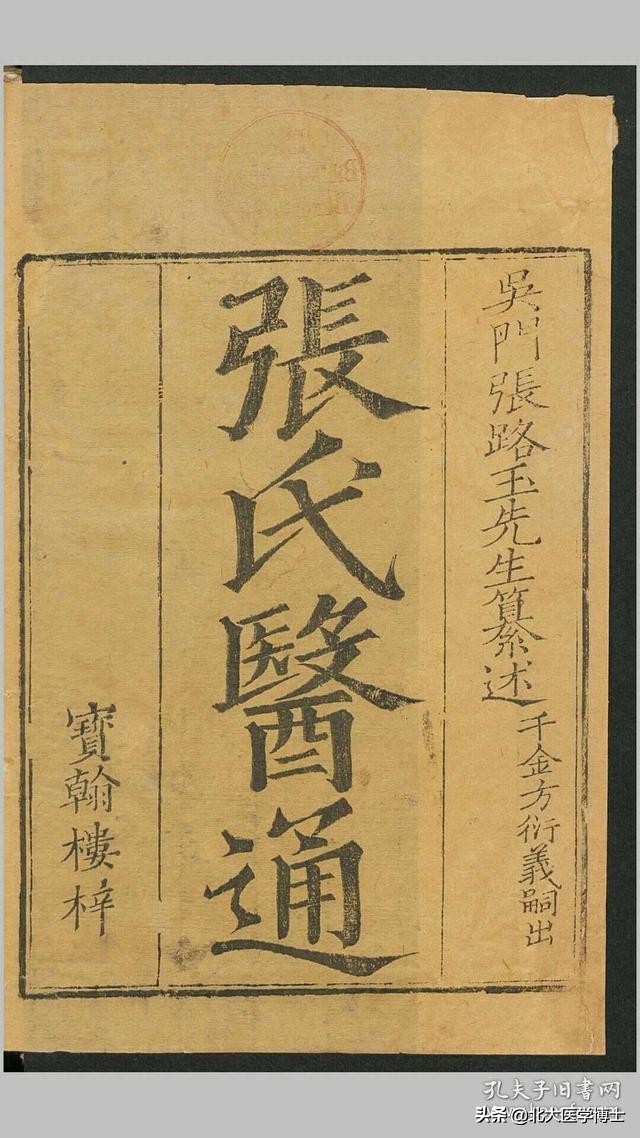 吳門張路玉先生纂述
千金方衍義嗣出
張氏醫通
寶翰樓梓
孔夫子旧书网
头条 @北大医学博士